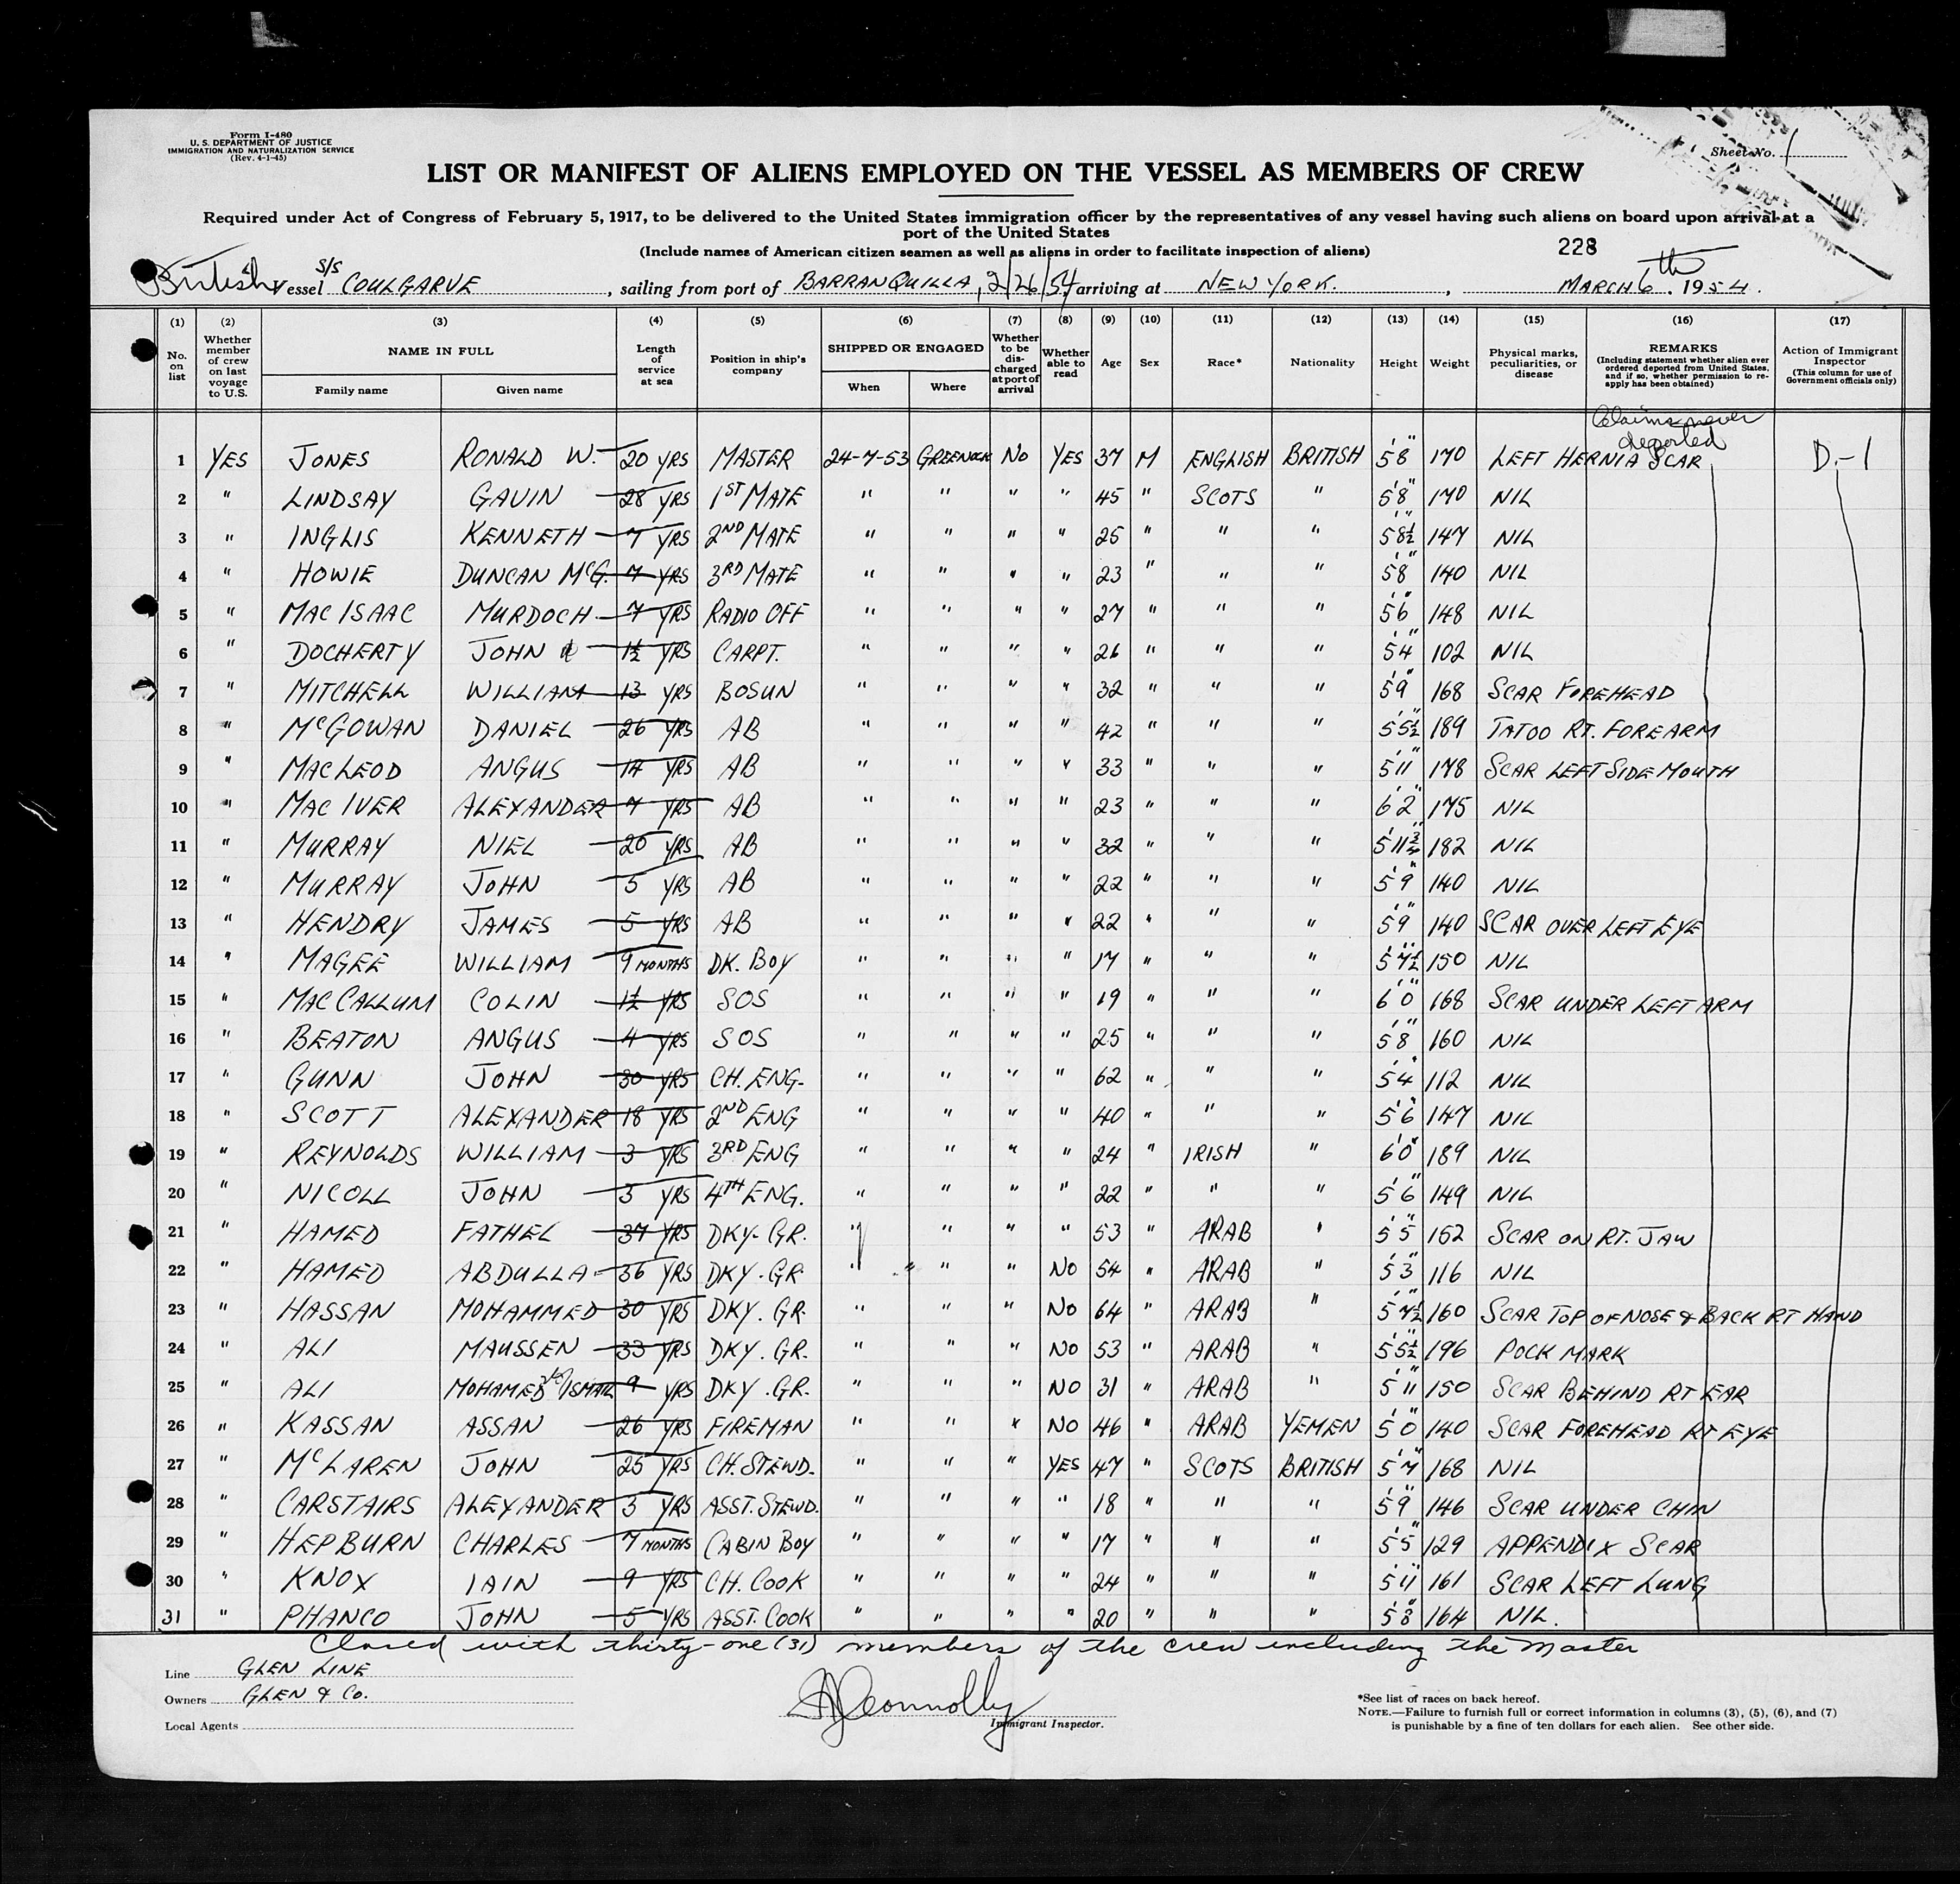 Form I-480
U. S. DEPARTMENT OF JUSTICE
IMMIGRATION AND NATURALIZATION SERVICE
(Rev. 4-1-45)
Sheet No. 1
LIST OR MANIFEST OF ALIENS EMPLOYED ON THE VESSEL AS MEMBERS OF CREW
Required under Act of Congress of February 5, 1917, to be delivered to the United States immigration officer by the representatives of any vessel having such aliens on board upon arrival at a
port of the United States
(Include names of American citizen seamen as well as aliens in order to facilitate inspection of aliens)
228
British Vessel S/S COULGARVE, sailing from port of BARRANQUILLA, 2/26/54, arriving at NEW YORK, MARCH 6th, 1954.
(1) (2) (3) (4) (5) (6) (7) (8) (9) (10) (11) (12) (13) (14) (15) (16) (17)
No. on list
Whether member of crew on last voyage to U.S.
NAME IN FULL
Family name
Given name
Length of service at sea
Position in ship's company
SHIPPED OR ENGAGED
When
Where
Whether to be discharged at port of arrival
Whether able to read
Age
Sex
Race*
Nationality
Height
Weight
Physical marks, peculiarities, or disease
REMARKS
(Including statement whether alien ever ordered deported from United States, and if so, whether permission to reapply has been obtained)
Action of Immigrant Inspector
(This column for use of Government officials only)
Claims never
deported
1 YES JONES RONALD W. 20 YRS MASTER 24-7-53 GREENOCK NO YES 37 M ENGLISH BRITISH 5'8" 170 LEFT HERNIA SCAR D-1
2 " LINDSAY GAVIN 28 YRS 1ST MATE " " " " 45 " SCOTS " 5'8" 170 NIL
3 " INGLIS KENNETH 7 YRS 2ND MATE " " " " 25 " " " 5'8½" 147 NIL
4 " HOWIE DUNCAN McG. 7 YRS 3RD MATE " " " " 23 " " " 5'8" 140 NIL
5 " MACISAAC MURDOCH 7 YRS RADIO OFF " " " " 27 " " " 5'6" 148 NIL
6 " DOCHERTY JOHN 1½ YRS CARPT. " " " " 26 " " " 5'4" 102 NIL
7 " MITCHELL WILLIAM 13 YRS BOSUN " " " " 32 " " " 5'9" 168 SCAR FOREHEAD
8 " McGOWAN DANIEL 26 YRS AB " " " " 42 " " " 5'5½" 189 TATOO RT. FOREARM
9 " MACLEOD ANGUS 14 YRS AB " " " " 33 " " " 5'11" 178 SCAR LEFT SIDE MOUTH
10 " MACIVER ALEXANDER 7 YRS AB " " " " 23 " " " 6'2" 175 NIL
11 " MURRAY NIEL 20 YRS AB " " " " 32 " " " 5'11¾" 182 NIL
12 " MURRAY JOHN 5 YRS AB " " " " 22 " " " 5'9" 140 NIL
13 " HENDRY JAMES 5 YRS AB " " " " 22 " " " 5'9" 140 SCAR OVER LEFT EYE
14 " MAGEE WILLIAM 9 MONTHS DK. BOY " " " " 17 " " " 5'7½" 150 NIL
15 " MACCALLUM COLIN 1½ YRS SOS " " " " 19 " " " 6'0" 168 SCAR UNDER LEFT ARM
16 " BEATON ANGUS 4 YRS SOS " " " " 25 " " " 5'8" 160 NIL
17 " GUNN JOHN 30 YRS CH. ENG. " " " " 62 " " " 5'4" 112 NIL
18 " SCOTT ALEXANDER 18 YRS 2ND ENG " " " " 40 " " " 5'6" 147 NIL
19 " REYNOLDS WILLIAM 3 YRS 3RD ENG " " " " 24 " IRISH " 6'0" 189 NIL
20 " NICOLL JOHN 3 YRS 4TH ENG. " " " " 22 " " " 5'6" 149 NIL
21 " HAMED FATHEL 37 YRS DKY. GR. " " " " 53 " ARAB " 5'5" 152 SCAR ON RT. JAW
22 " HAMED ABDULLA 36 YRS DKY. GR. " " " NO 54 " ARAB " 5'3" 116 NIL
23 " HASSAN MOHAMMED 30 YRS DKY. GR. " " " NO 64 " ARAB " 5'7½" 160 SCAR TOP OF NOSE & BACK RT HAND
24 " ALI MAUSSEN 33 YRS DKY. GR. " " " NO 53 " ARAB " 5'5½" 196 POCK MARK
25 " ALI MOHAMED ISMAIL 9 YRS DKY. GR. " " " NO 31 " ARAB " 5'11" 150 SCAR BEHIND RT EAR
26 " KASSAN ASSAN 26 YRS FIREMAN " " " NO 46 " ARAB YEMEN 5'0" 140 SCAR FOREHEAD RT EYE
27 " McLAREN JOHN 25 YRS CH. STEWD. " " " YES 47 " SCOTS BRITISH 5'7" 168 NIL
28 " CARSTAIRS ALEXANDER 3 YRS ASST. STEWD. " " " " 18 " " " 5'9" 146 SCAR UNDER CHIN
29 " HEPBURN CHARLES 7 MONTHS CABIN BOY " " " " 17 " " " 5'5" 129 APPENDIX SCAR
30 " KNOX IAIN 9 YRS CH. COOK " " " " 24 " " " 5'11" 161 SCAR LEFT LUNG
31 " PHANCO JOHN 5 YRS ASST. COOK " " " " 20 " " " 5'8" 164 NIL.
Closed with thirty-one (31) members of the crew including the Master
Line GLEN LINE
Owners GLEN & Co.
Local Agents
Connolly
Immigrant Inspector.
*See list of races on back hereof.
NOTE.—Failure to furnish full or correct information in columns (3), (5), (6), and (7)
is punishable by a fine of ten dollars for each alien. See other side.